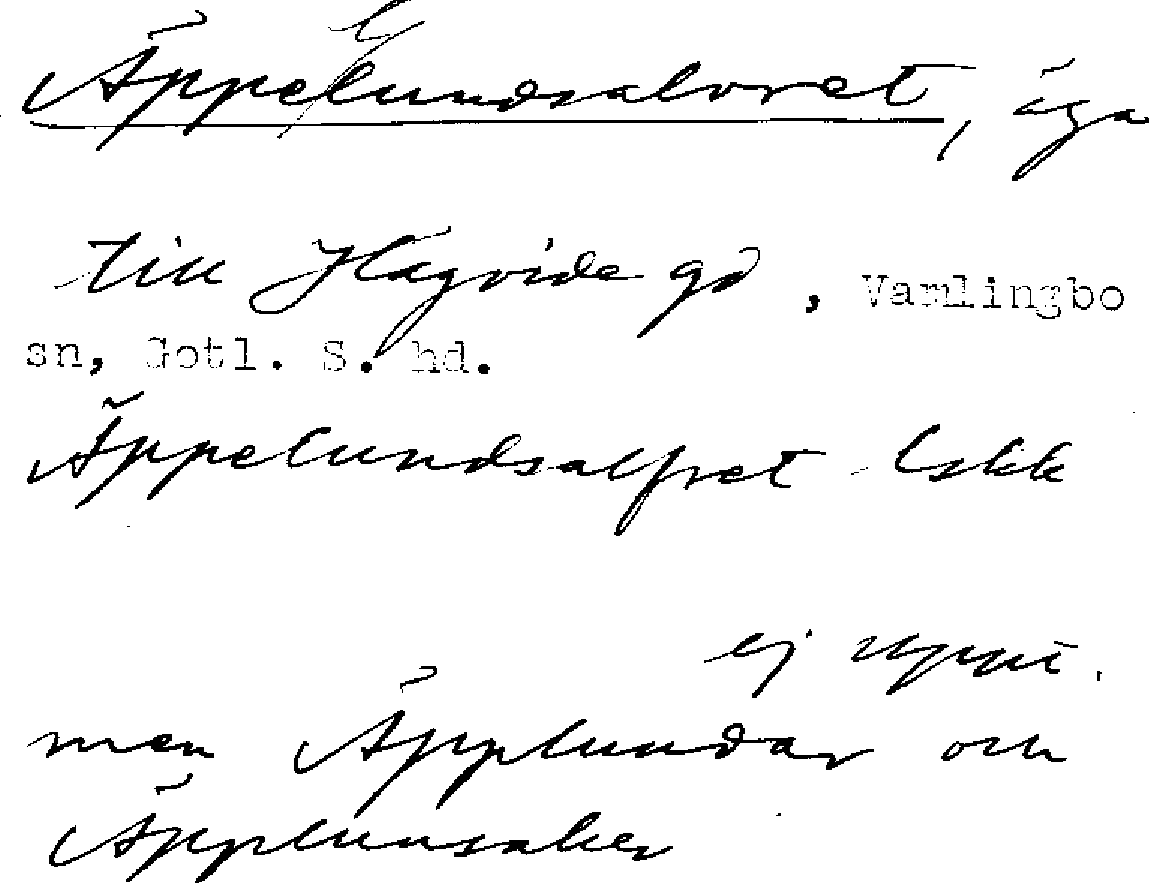 Äppelundsalvret, äga
till Hagvide gd, Vamlingbo
sn, Gotl. S. hd.
Äppelundsalfret Lskk
ej uppt.
men Äpplundar och
Äpplunsaker